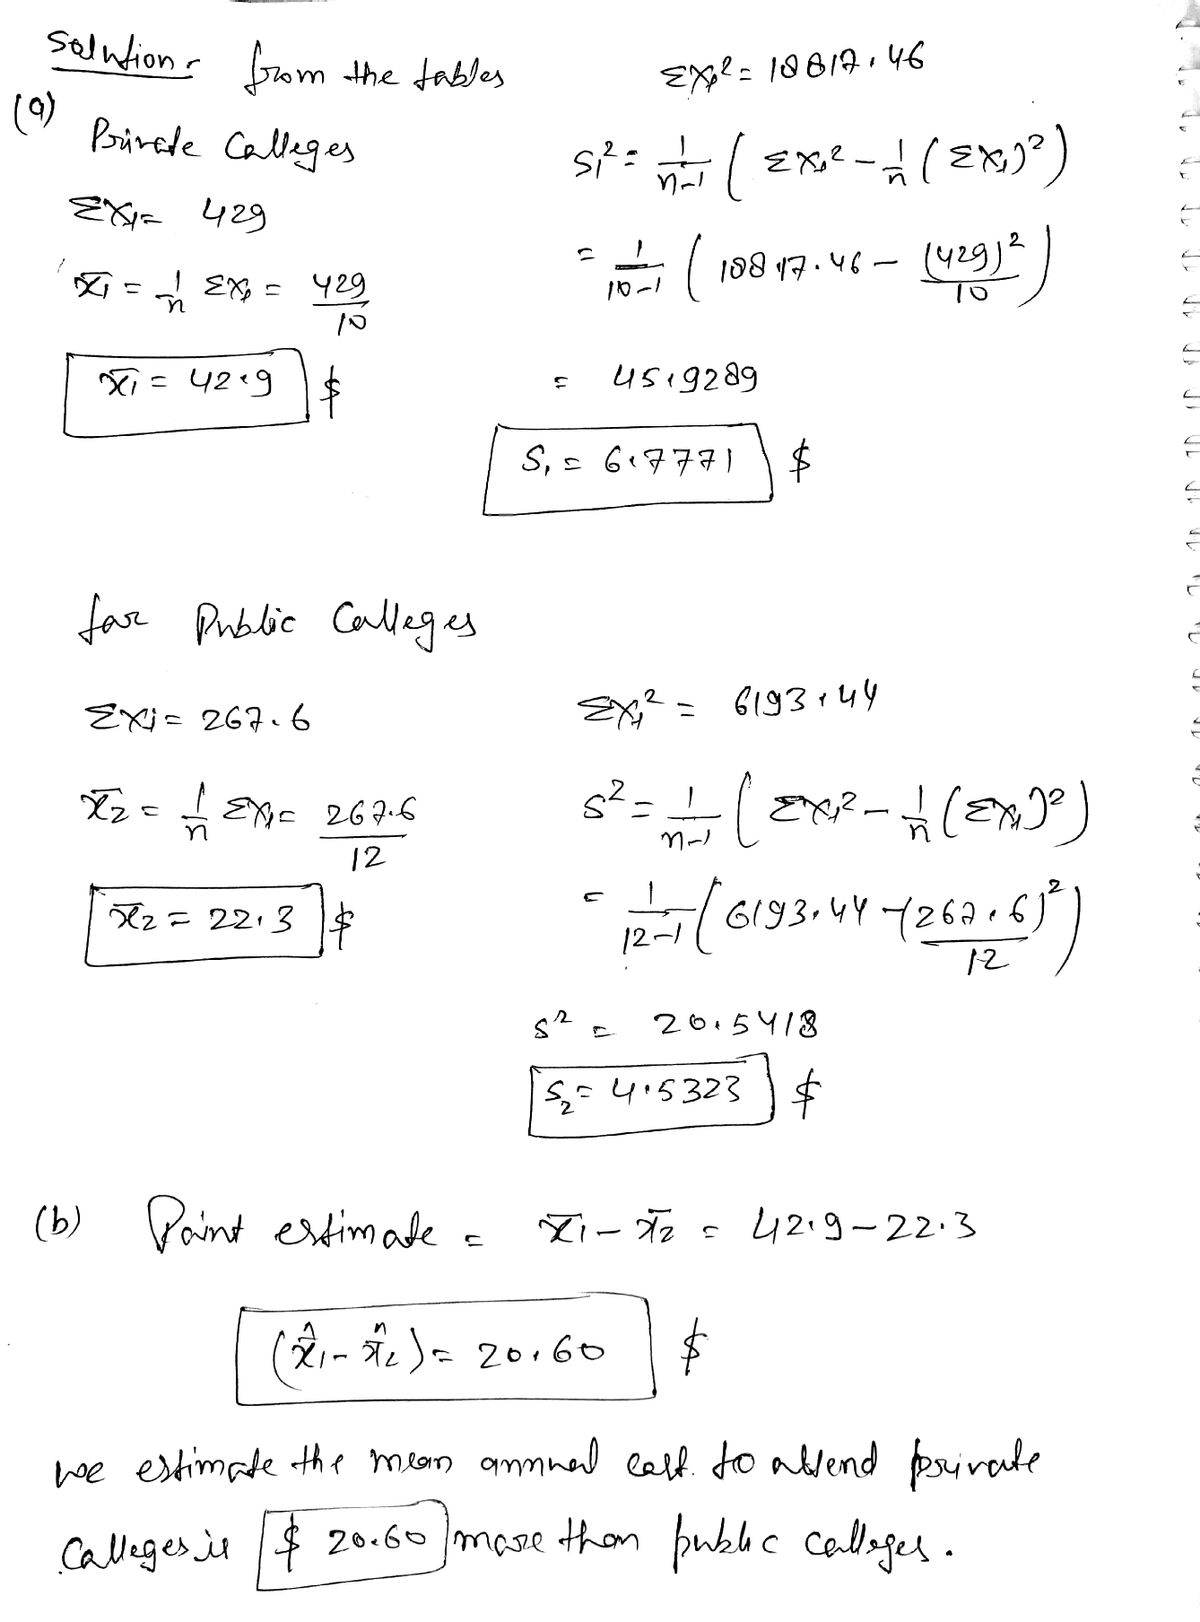 Solution:- from the tables
(a)
Private Colleges
Σxi = 429
x̄1 = 1/n Σxi = 429/10
x̄1 = 42.9 $
Σxi² = 18817.46
S1² = 1/(n-1) ( Σxi² - 1/n (Σxi)² )
= 1/(10-1) ( 18817.46 - (429)²/10 )
= 45.9289
S1 = 6.7771 $
for Public Colleges
Σxi = 267.6
x̄2 = 1/n Σxi = 267.6/12
x̄2 = 22.3 $
Σxi² = 6193.44
S² = 1/(n-1) ( Σxi² - 1/n (Σxi)² )
= 1/(12-1) ( 6193.44 - (267.6)²/12 )
S² = 20.5418
S2 = 4.5323 $
(b) Point estimate = x̄1 - x̄2 = 42.9 - 22.3
(x̂1 - x̂2) = 20.60 $
we estimate the mean annual cost. to attend private
Colleges is $ 20.60 more than public colleges.